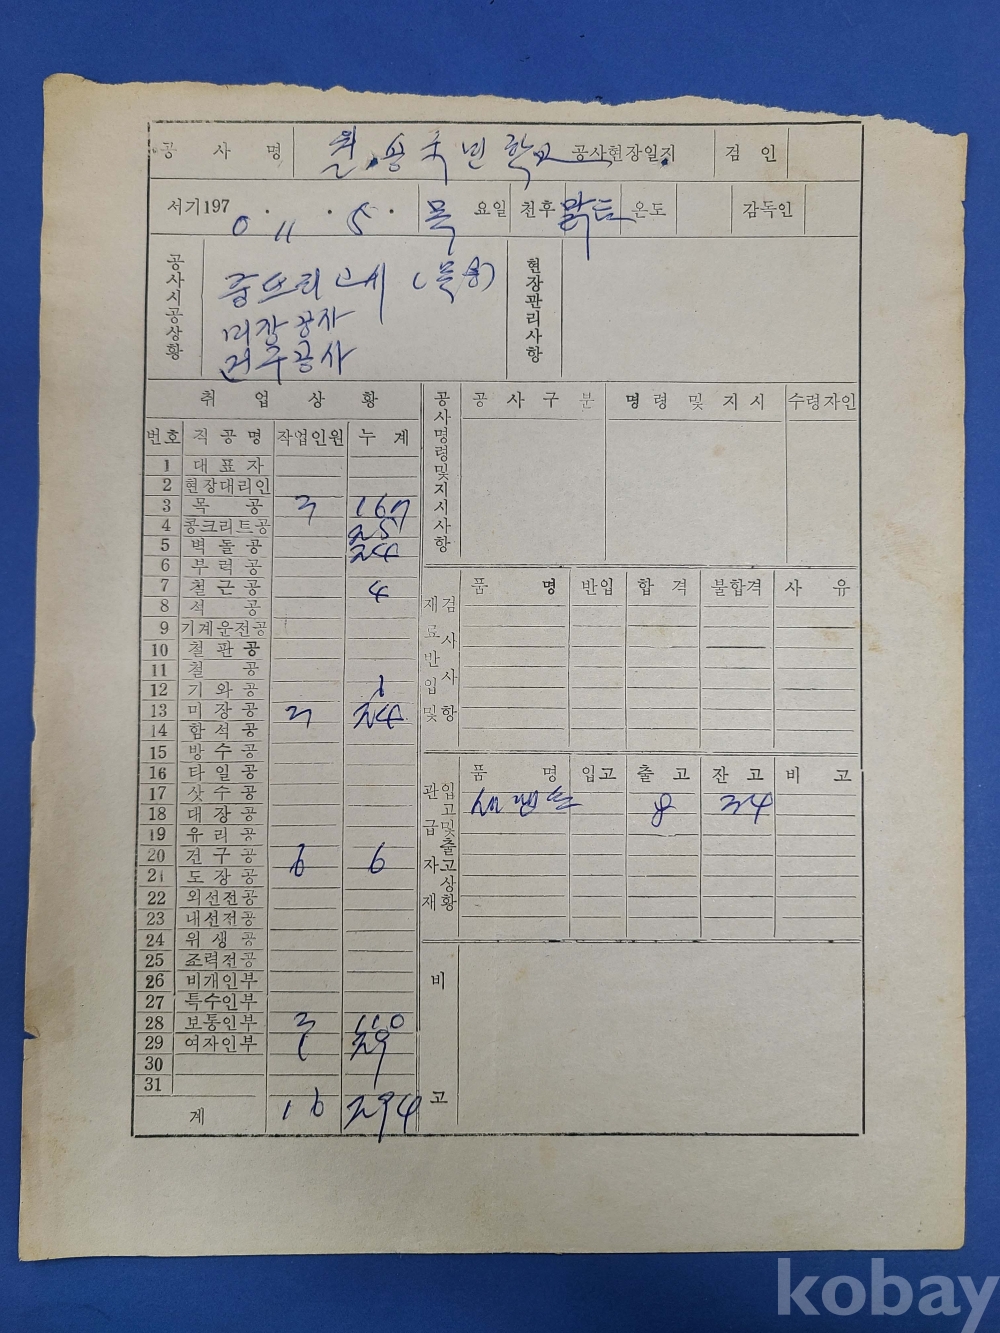 공사명 국민학교 공사현장일지 검인
서기197 0. 11. 5. 목 요일 천후 맑음 온도 감독인
공사시공상황
미장공사
견구공사
현장관리사항
취업상황
번호 직공명 작업인원 누계
1 대표자
2 현장대리인
3 목공 3 167
4 콩크리트공 25
5 벽돌공 24
6 부럭공
7 철근공 4
8 석공
9 기계운전공
10 철관공
11 철공
12 기와공 1
13 미장공 24
14 함석공
15 방수공
16 타일공
17 삿수공
18 대장공
19 유리공
20 견구공 6 6
21 도장공
22 외선전공
23 내선전공
24 위생공
25 조력전공
26 비개인부
27 특수인부
28 보통인부 3 110
29 여자인부 1 29
30
31
계 16 294
공사명령및지시사항
공사구분 명령및지시 수령자인
재료반입및검사사항
품명 반입 합격 불합격 사유
관급자재입고및출고상황
품명 입고 출고 잔고 비고
8 34
비고
kobay